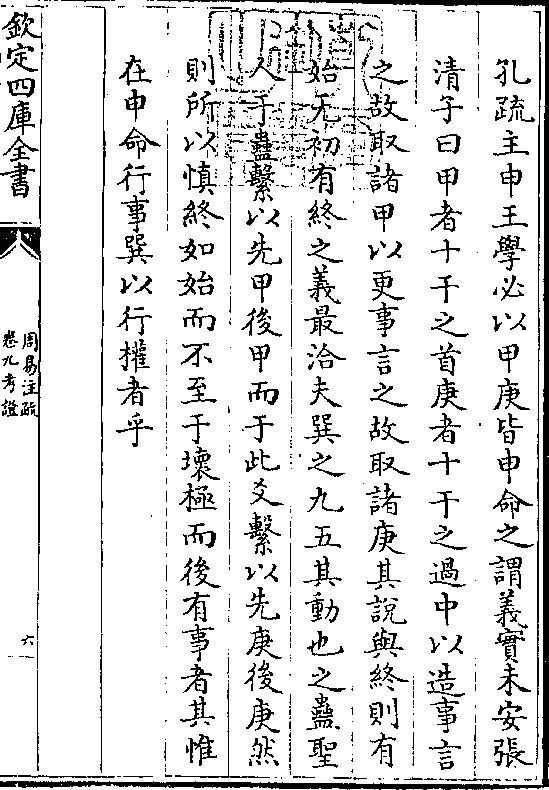 孔疏主申王學必以甲庚皆申命之謂義實未安張
清子曰甲者十干之首庚者十干之過中以造事言
之故取諸甲以更事言之故取諸庚其說與終則有
始无初有終之義最洽夫巽之九五其動也之蠱聖
人于蠱繫以先甲後甲而于此爻繫以先庚後庚然
則所以慎終如始而不至于壞極而後有事者其惟
在申命行事巽以行權者乎
欽定四庫全書
周易注疏
卷九考證
六